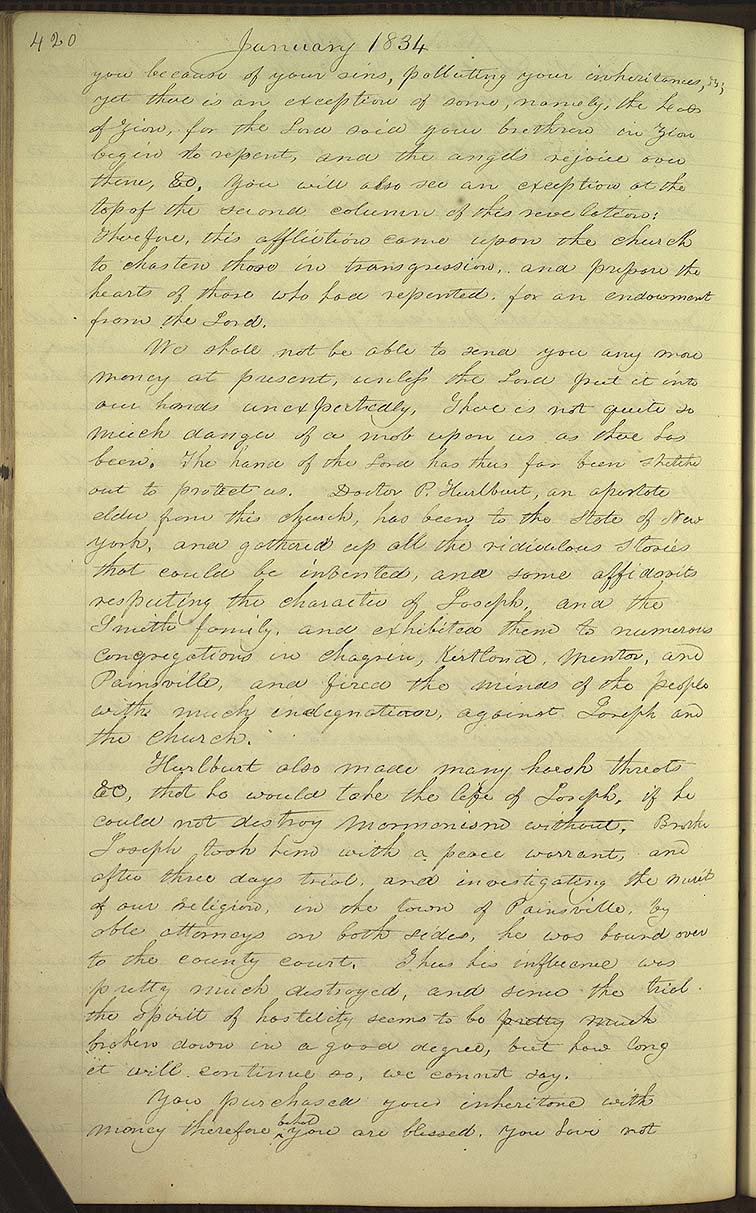 420
January 1834
you because of your sins, polluting your inheritances, &c;
yet there is an exception of some, namely, the heads
of Zion, for the Lord said your brethren in Zion
begin to repent, and the angels rejoice over
them, &c. You will also see an exception at the
top of the second column of this revelation;
therefore, this affliction came upon the church
to chasten those in transgression, and prepare the
hearts of those who had repented, for an endowment
from the Lord.
We shall not be able to send you any more
money at present, unless the Lord put it into
our hands unexpectedly. There is not quite so
much danger of a mob upon us as there has
been. The hand of the Lord has thus far been stretched
out to protect us. Doctor P. Hurlburt, an apostate
elder from this church, has been to the state of New
York, and gathered up all the ridiculous stories
that could be invented, and some affidavits
respecting the character of Joseph, and the
Smith family, and exhibited them to numerous
congregations in Chagrin, Kirtland, Mentor, and
Painsville, and fired the minds of the people
with much indignation, against Joseph and
the church.
Hurlburt also made many harsh threats
&c, that he would take the life of Joseph, if he
could not destroy Mormonism without. Brother
Joseph took him with a peace warrant, and
after three days trial, and investigating the merits
of our religion, in the town of Painsville, by
able attorneys on both sides, he was bound over
to the county court. Thus his influence was
pretty much destroyed, and since the trial
the spirit of hostility seems to be pretty much
broken down in a good degree, but how long
it will continue so, we cannot say.
You purchased your inheritance with
money therefore behold you are blessed. You have not